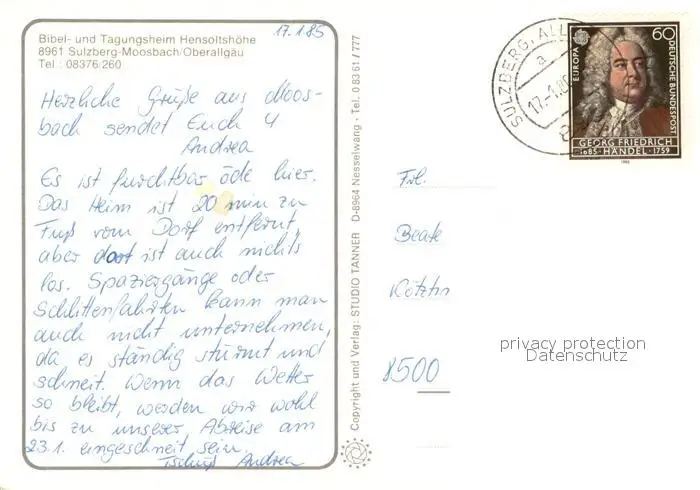 17.1.85
Bibel- und Tagungsheim Hensoltshöhe
8961 Sulzberg-Moosbach/Oberallgäu
Tel.: 08376/260
Herzliche Grüße aus Moos-
bach sendet Euch 4
Andrea
Es ist furchtbar öde hier.
Das Heim ist 20 min zu
Fuß vom Dorf entfernt,
aber dort ist auch nichts
los. Spaziergänge oder
Schlittenfahrten kann man
auch nicht unternehmen,
da es ständig stürmt und
schneit. Wenn das Wetter
so bleibt, werden wir wohl
bis zu unserer Abreise am
23.1. eingeschneit sein.
Tschüß Andrea
Copyright und Verlag: STUDIO TANNER D-8964 Nesselwang · Tel. 0 83 61 / 777
SULZBERG, ALL
a
17.-1.85
EUROPA
60
DEUTSCHE BUNDESPOST
GEORG FRIEDRICH
1685 · HÄNDEL · 1759
1985
Frl.
Beate
8500
privacy protection
Datenschutz